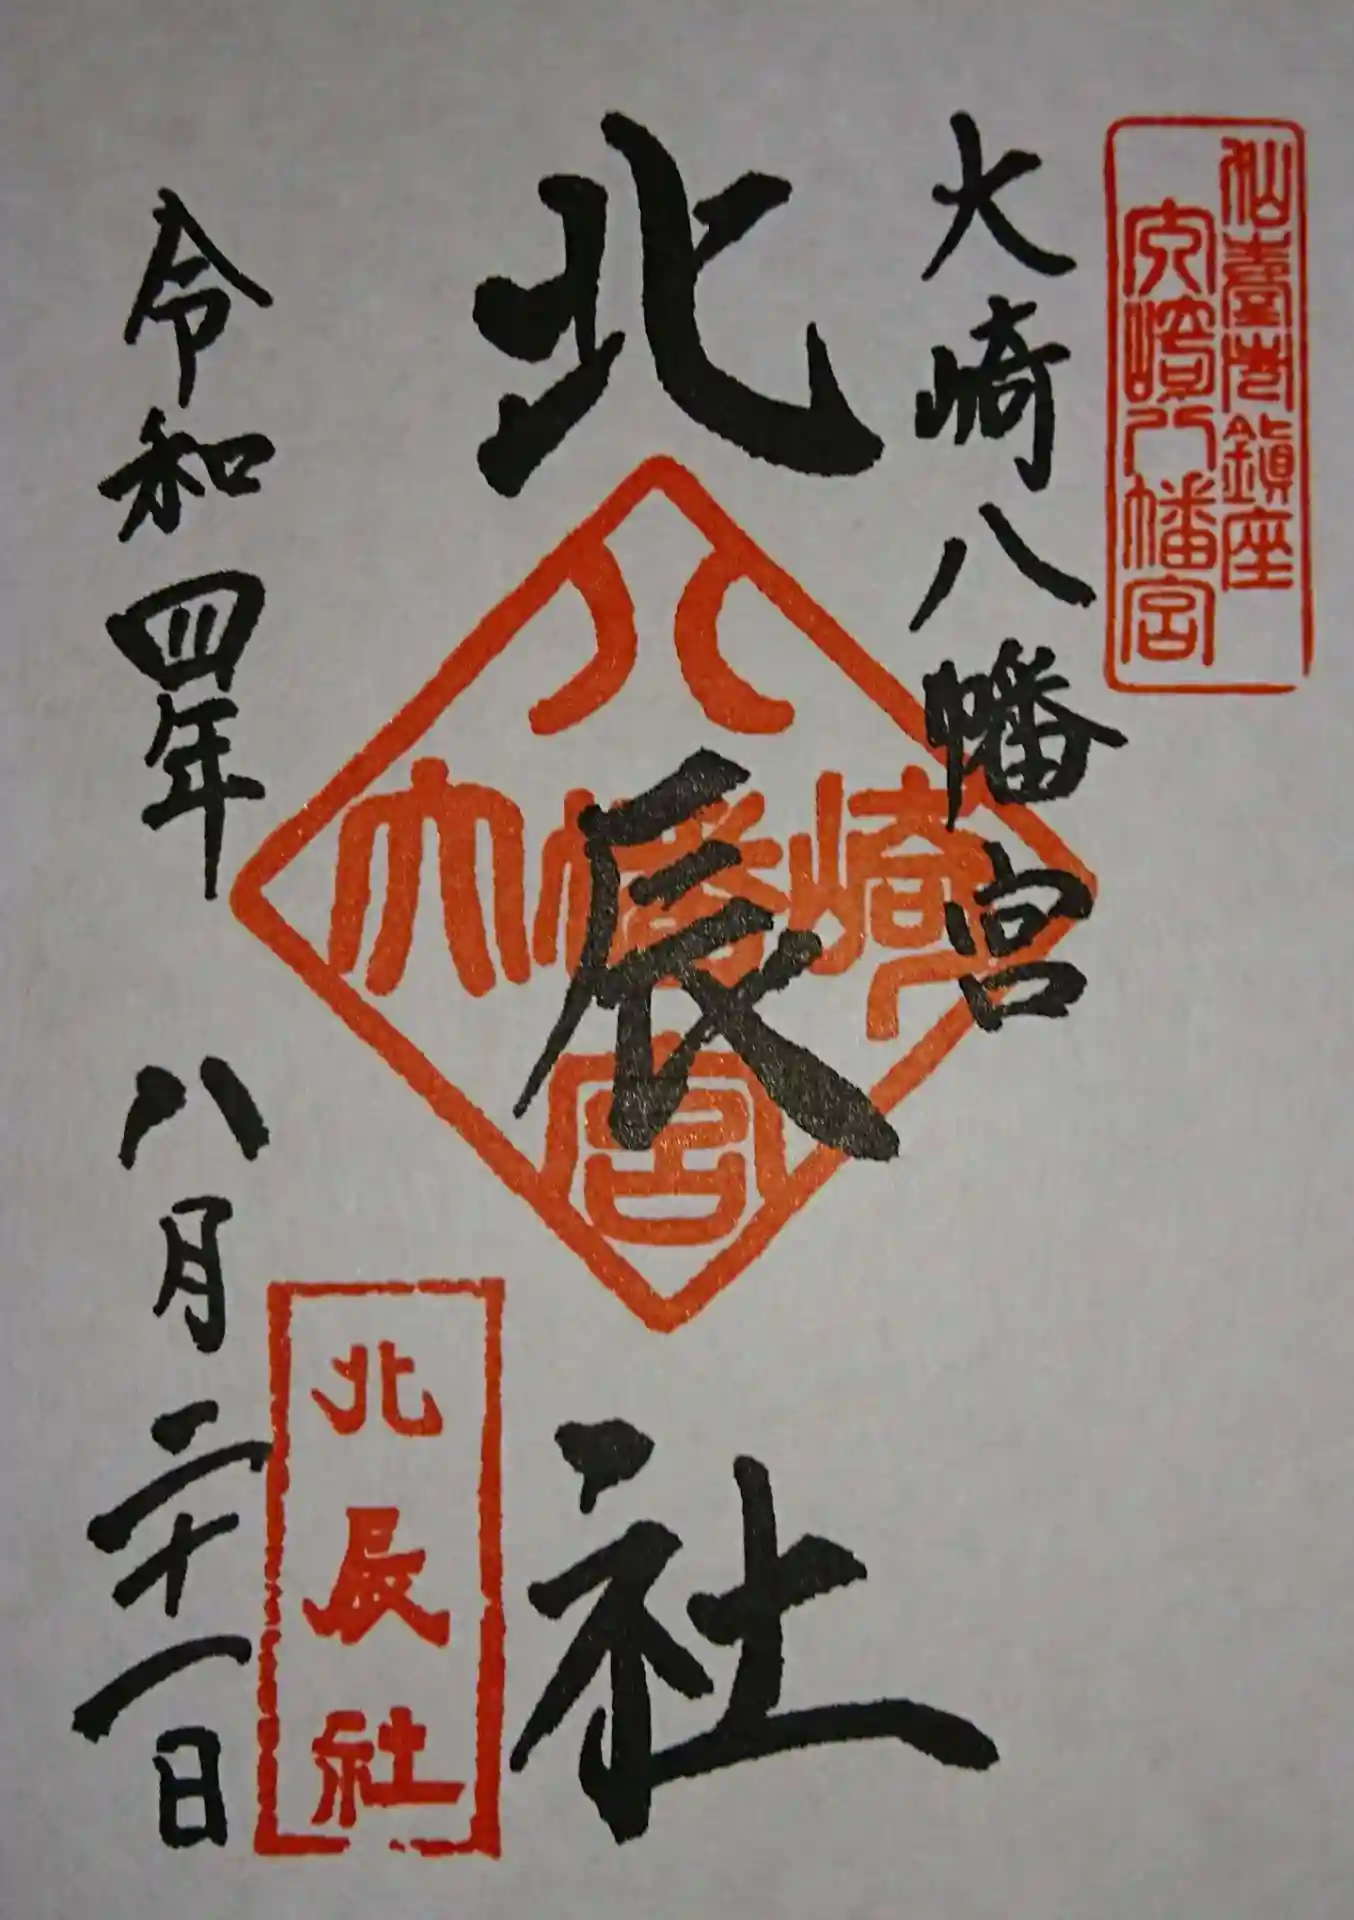 仙臺总鎮座
大崎八幡宮
大崎八幡宮
北辰社
八
大幡崎
宮
北辰社
令和四年 八月二十一日